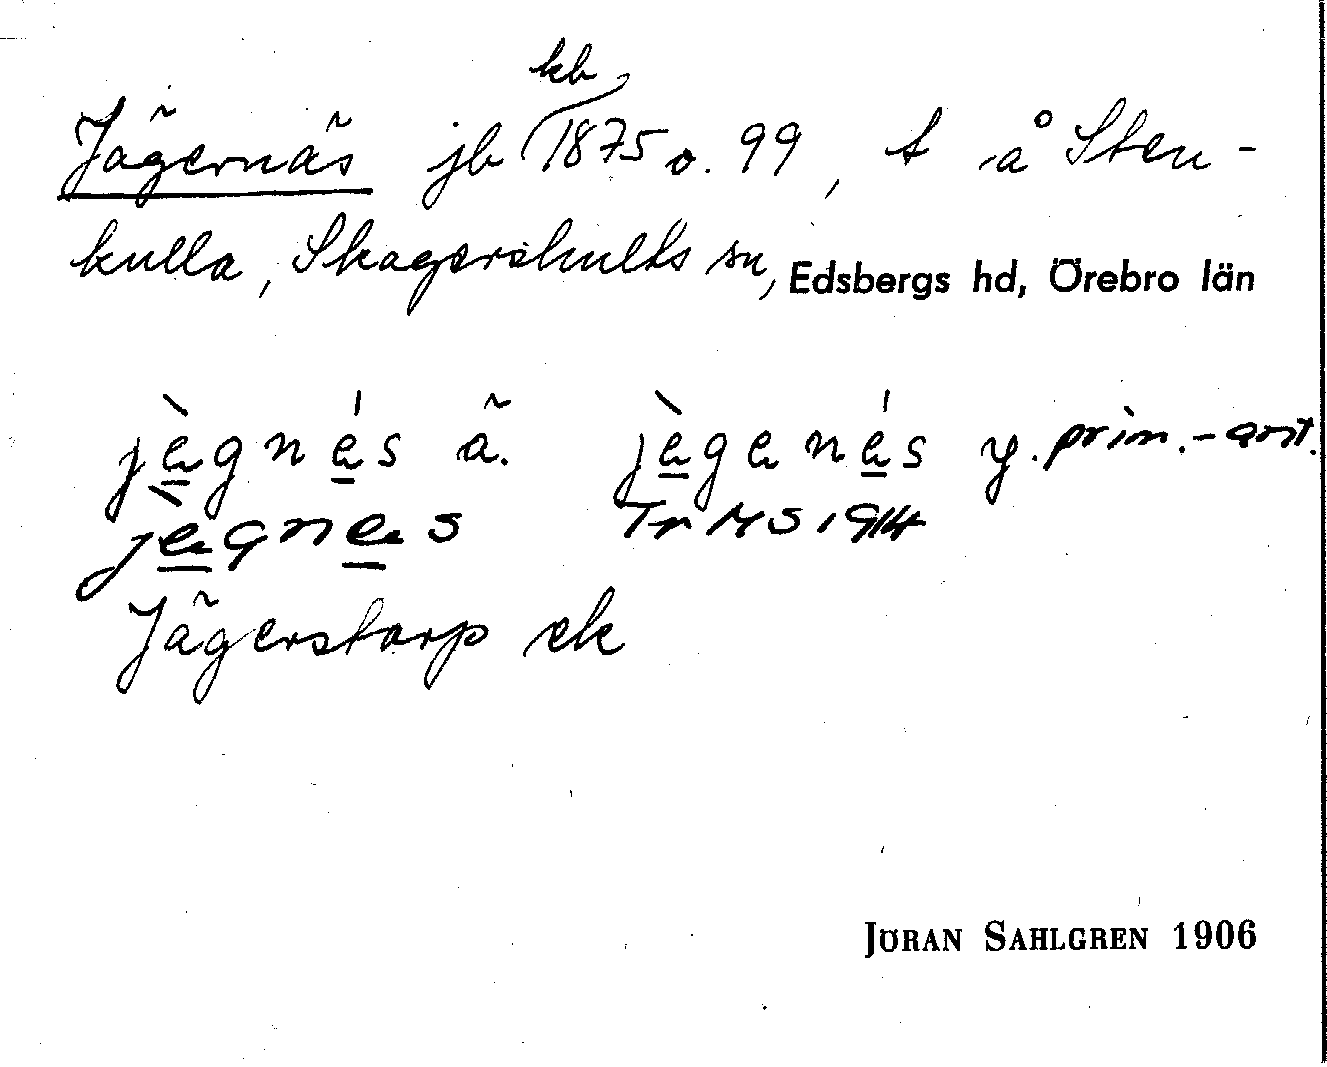 Jägernäs jb (kb 1875 o. 99, t å Sten-
kulla, Skagershults sn, Edsbergs hd, Örebro län
jègnés ä. jègenés y. prim.-ant.
jègnes Tr MS 1914
Jägerstorp ek
JÖRAN SAHLGREN 1906